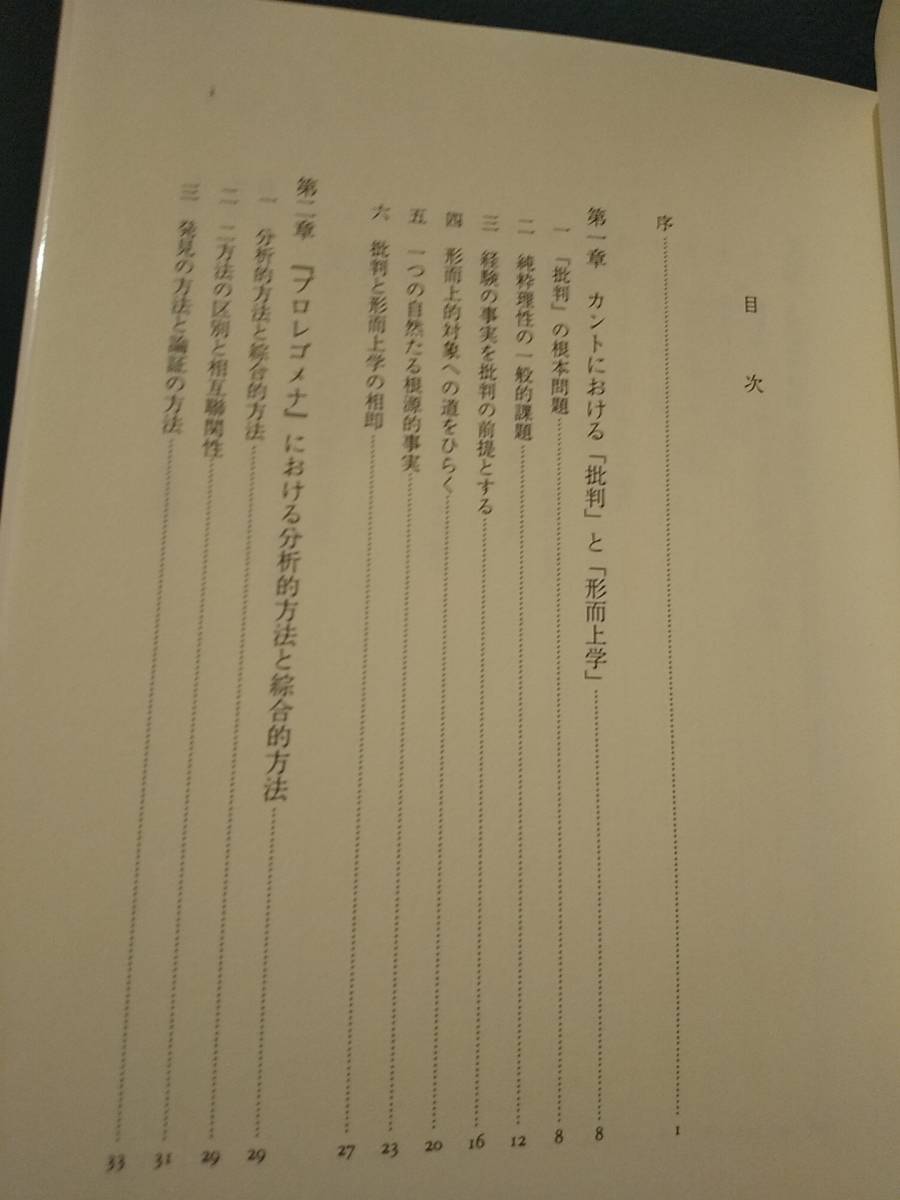 目次
序 1
第一章 カントにおける「批判」と「形而上学」 8
一 『批判』の根本問題 8
二 純粋理性の一般的課題 12
三 経験の事実を批判の前提とする 16
四 形而上的対象への道をひらく 20
五 一つの自然たる根源的事実 23
六 批判と形而上学の相即 27
第二章 『プロレゴメナ』における分析的方法と綜合的方法 29
一 分析的方法と綜合的方法 29
二 二方法の区別と相互聯関性 31
三 発見の方法と論証の方法 33